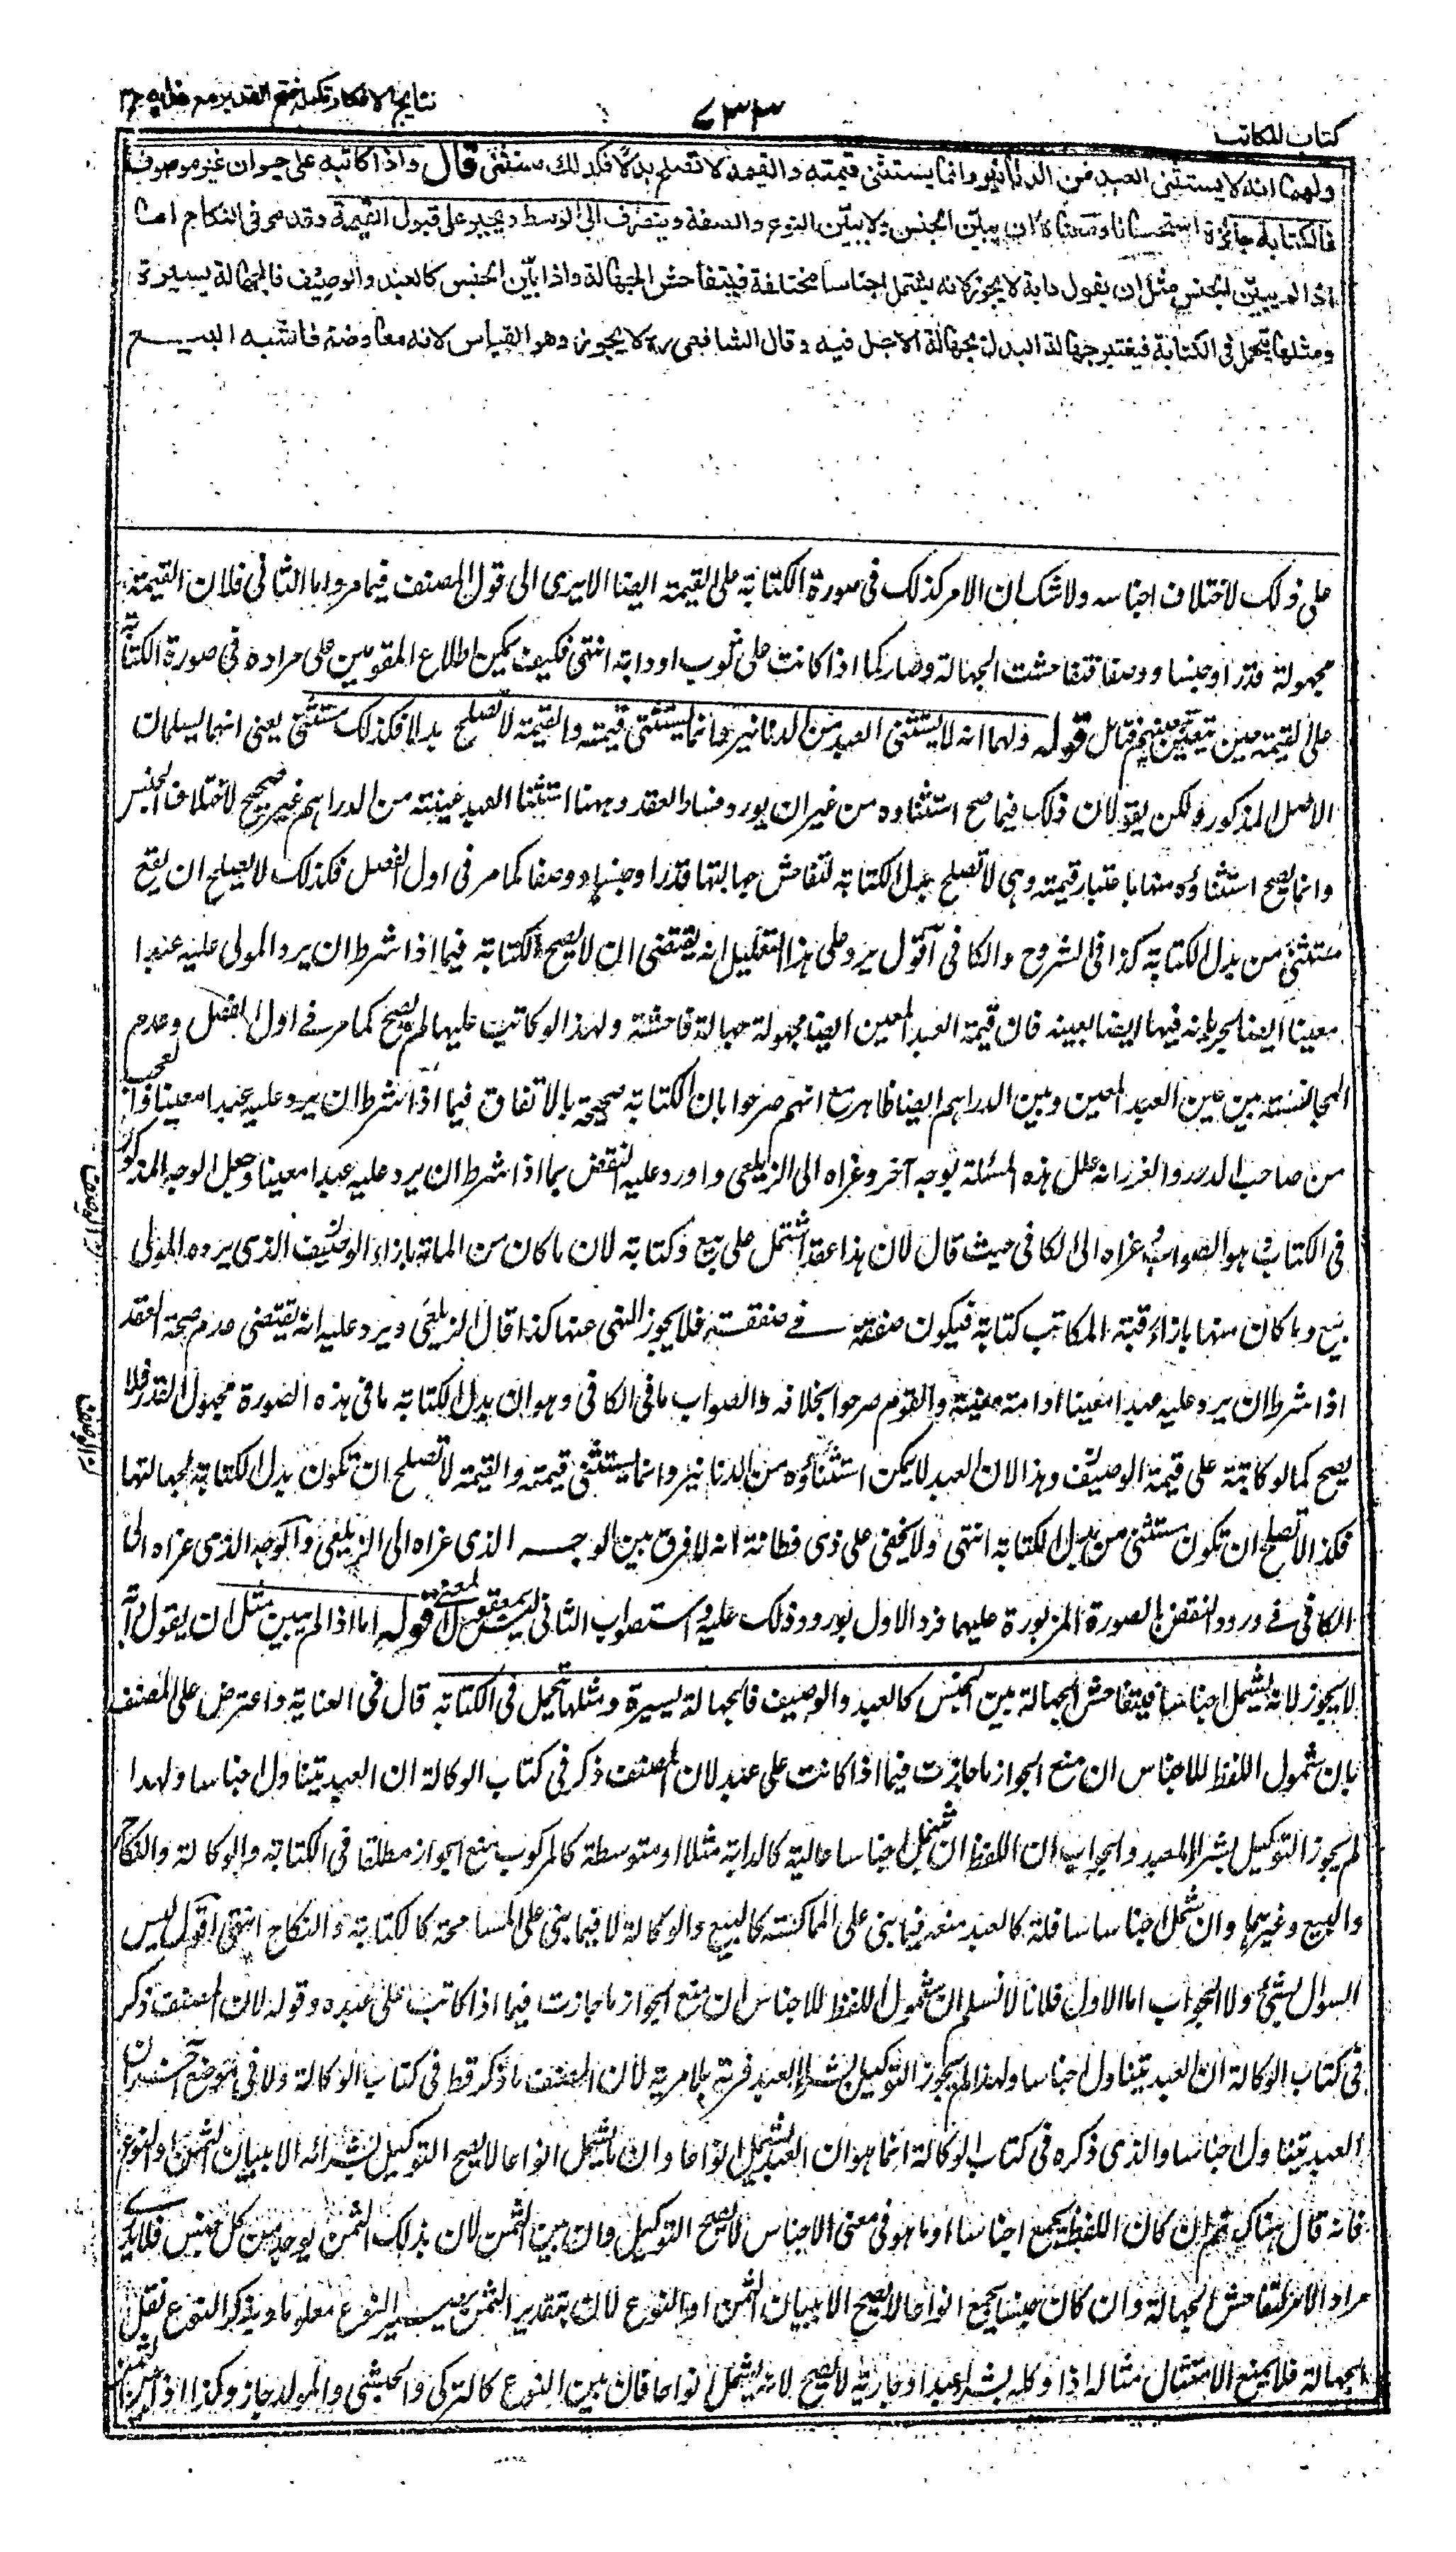 كتاب المكاتب
٧٣٣
نتايج الافكار تكمله فتح القدير مع هدايه ج٣
ولهما انه لا يستثنى العبد من الدنانير وانما يستثنى قيمته والقيمة لا تصلح بدلا فكذلك مستثنى قال واذا كاتبه على حيوان غير موصوف
فالكتابة جائزة استحسانا ومعناه ان يبين الجنس ولا يبين النوع والصفة وينصرف الى الوسط ويجبر على قبول القيمة وقد مر في النكاح اما
اذا لم يبين الجنس مثل ان يقول دابة لا يجوز لانه يشتمل اجناسا مختلفة فيتفاحش الجهالة واذا بين الجنس كالعبد والوصيف فالجهالة يسيرة
ومثلها يتحمل في الكتابة فيعتبر جهالة البدل بجهالة الاجل فيه وقال الشافعي ره لا يجوز وهو القياس لانه معاوضة فاشبه البيع
على ذلك لاختلاف اجناسه ولا شك ان الامر كذلك في صورة الكتابة على القيمة ايضا الا يرى الى قول المصنف فيما مر واما الثاني فلان القيمة
مجهولة قدرا وجنسا ووصفا فتفاحشت الجهالة وصار كما اذا كانت على ثوب او دابة انتهى فكيف يمكن اطلاع المقومين على مراده في صورة الكتابة
على القيمة حين تتعين بينهم فتامل قوله ولهما انه لا يستثنى العبد من الدنانير وانما يستثنى قيمته والقيمة لا تصلح بدلا فكذلك مستثنى يعني انهما يسلمان
الاصل المذكور ولكن يقولان ذلك فيما صح استثناؤه من غير ان يورد فساد العقد وههنا استثناء العبد عينيته من الدراهم غير صحيح لاختلاف الجنس
وانما يصح استثناؤه منها باعتبار قيمته وهي لا تصلح بدل الكتابة لتفاحش جهالتها قدرا وجنسا ووصفا كما مر في اول الفصل فكذلك لا يصلح ان يقع
مستثنى من بدل الكتابة كذا في الشروح والكافي اقول يرد على هذا التعليل انه يقتضي ان لا يصح الكتابة فيما اذا شرط ان يرد المولى عليه عبدا
معينا ايضا لجريانه فيها ايضا بعينه فان قيمة العبد المعين ايضا مجهولة جهالة فاحشة ولهذا لو كاتب عليها لم يصح كما مر في اول الفصل وعدم
المجانسة بين عين العبد المعين وبين الدراهم ايضا ظاهر مع انهم صرحوا بان الكتابة صحيحة بالاتفاق فيما اذا شرط ان يرد عليه عبدا معينا فان العجب
من صاحب الدرر والغرر انه علل هذه المسئلة بوجه آخر وعزاه الى الزيلعي واورد عليه النقض بما اذا شرط ان يرد عليه عبدا معينا وجعل الوجه المذكور
في الكتاب هو الصواب وعزاه الى الكافي حيث قال لان هذا عقد اشتمل على بيع وكتابة لان ما كان من المائة بازاء الوصيف الذي يرده المولى
بيع وما كان منها بازاء رقبة المكاتب كتابة فيكون صفقة في صفقة فلا يجوز للنهي عنها كذا قال الزيلعي ويرد عليه انه يقتضي عدم صحة العقد
اذا شرط ان يرد عليه عبدا معينا او امة معينة والقوم صرحوا بخلافه والصواب ما في الكافي وهو ان بدل الكتابة ما في هذه الصورة مجهول القدر فلا
يصح كما لو كاتبه على قيمة الوصيف وهذا لان العبد لا يمكن استثناؤه من الدنانير وانما يستثنى قيمته والقيمة لا تصلح ان تكون بدل الكتابة لجهالتها
فكذا لا تصلح ان تكون مستثنى من بدل الكتابة انتهى ولا يخفى على ذي فطانة انه لا فرق بين الوجه الذي عزاه الى الزيلعي والوجه الذي عزاه الى
الكافي في ورود النقض بالصورة المزبورة عليهما فرد الاول بورود ذلك عليه واستصواب الثاني ليس بمعقول المعنى قوله اما اذا لم يبين مثل ان يقول دابة
لا يجوز لانه يشمل اجناسا فيتفاحش الجهالة بين الجنس كالعبد والوصيف فالجهالة يسيرة ومثلها يتحمل في الكتابة قال في العناية واعترض على المصنف
بان شمول اللفظ للاجناس ان منع الجواز ما جازت فيما اذا كانت على عبد لان المصنف ذكر في كتاب الوكالة ان العبد يتناول اجناسا ولهذا
لم يجوز التوكيل بشراء العبد والجواب ان اللفظ ان شمل اجناسا عالية كالدابة مثلا او متوسطة كالمركوب منع الجواز مطلقا في الكتابة والوكالة والنكاح
والبيع وغيرها وان شمل اجناسا سافلة كالعبد منعه فيما بني على المماكسة كالبيع والوكالة لا فيما بني على المسامحة كالكتابة والنكاح انتهى اقول ليس
السوال بشيء ولا الجواب اما الاول فلانا لا نسلم ان شمول اللفظ للاجناس ان منع الجواز ما جازت فيما اذا كاتب على عبده وقوله لان المصنف ذكر
في كتاب الوكالة ان العبد يتناول اجناسا ولهذا لم يجوز التوكيل بشراء العبد فرية بلا مرية لان المصنف ما ذكر قط في كتاب الوكالة ولا في موضع آخر ان
العبد يتناول اجناسا والذي ذكره في كتاب الوكالة انما هو ان العبد يشمل انواعا وان ما يشمل انواعا لا يصح التوكيل بشرائه الا ببيان الثمن او النوع
فانه قال هناك ثم ان كان اللفظ يجمع اجناسا او ما هو في معنى الاجناس لا يصح التوكيل وان بين الثمن لان بذلك الثمن يوجد من كل جنس فلا يدرى
مراد الامر لتفاحش الجهالة وان كان جنسا يجمع انواعا لا يصح الا ببيان الثمن او النوع لان بتقدير الثمن يصير النوع معلوما وبذكر النوع تقل
الجهالة فلا يمنع الامتثال مثاله اذا وكله بشراء عبد او جارية لا يصح لانه يشمل انواعا فان بين النوع كالتركي والحبشي والمولد جاز وكذا اذا بين الثمن